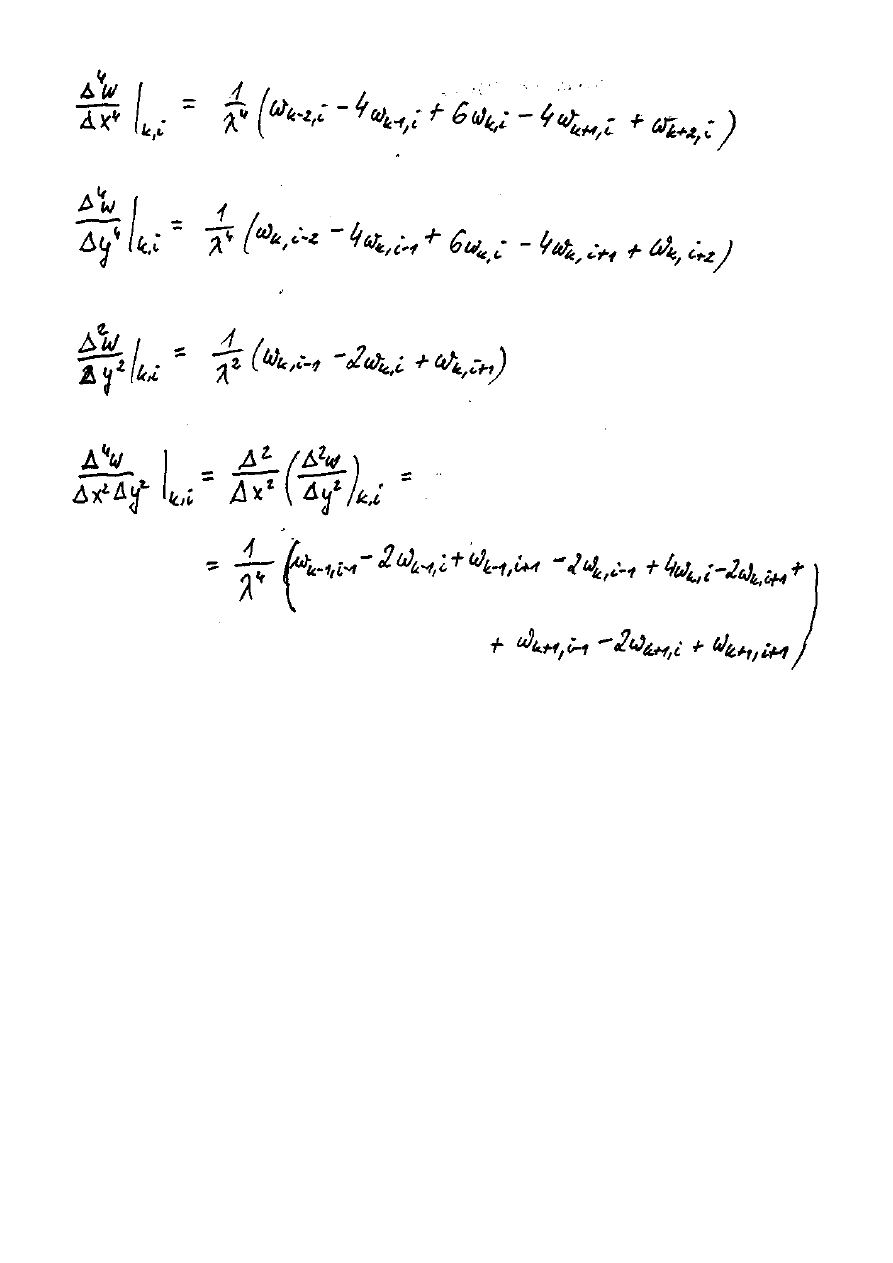 Δ⁴w/Δx⁴ |k,i = 1/λ⁴ (wk-2,i - 4wk-1,i + 6wk,i - 4wk+1,i + wk+2,i)
Δ⁴w/Δy⁴ |k,i = 1/λ⁴ (wk,i-2 - 4wk,i-1 + 6wk,i - 4wk,i+1 + wk,i+2)
Δ²w/Δy² |k,i = 1/λ² (wk,i-1 - 2wk,i + wk,i+1)
Δ⁴w/Δx²Δy² |k,i = Δ²/Δx² (Δ²w/Δy²)k,i =
= 1/λ⁴ (wk-1,i-1 - 2wk-1,i + wk-1,i+1 - 2wk,i-1 + 4wk,i - 2wk,i+1 +
+ wk+1,i-1 - 2wk+1,i + wk+1,i+1)